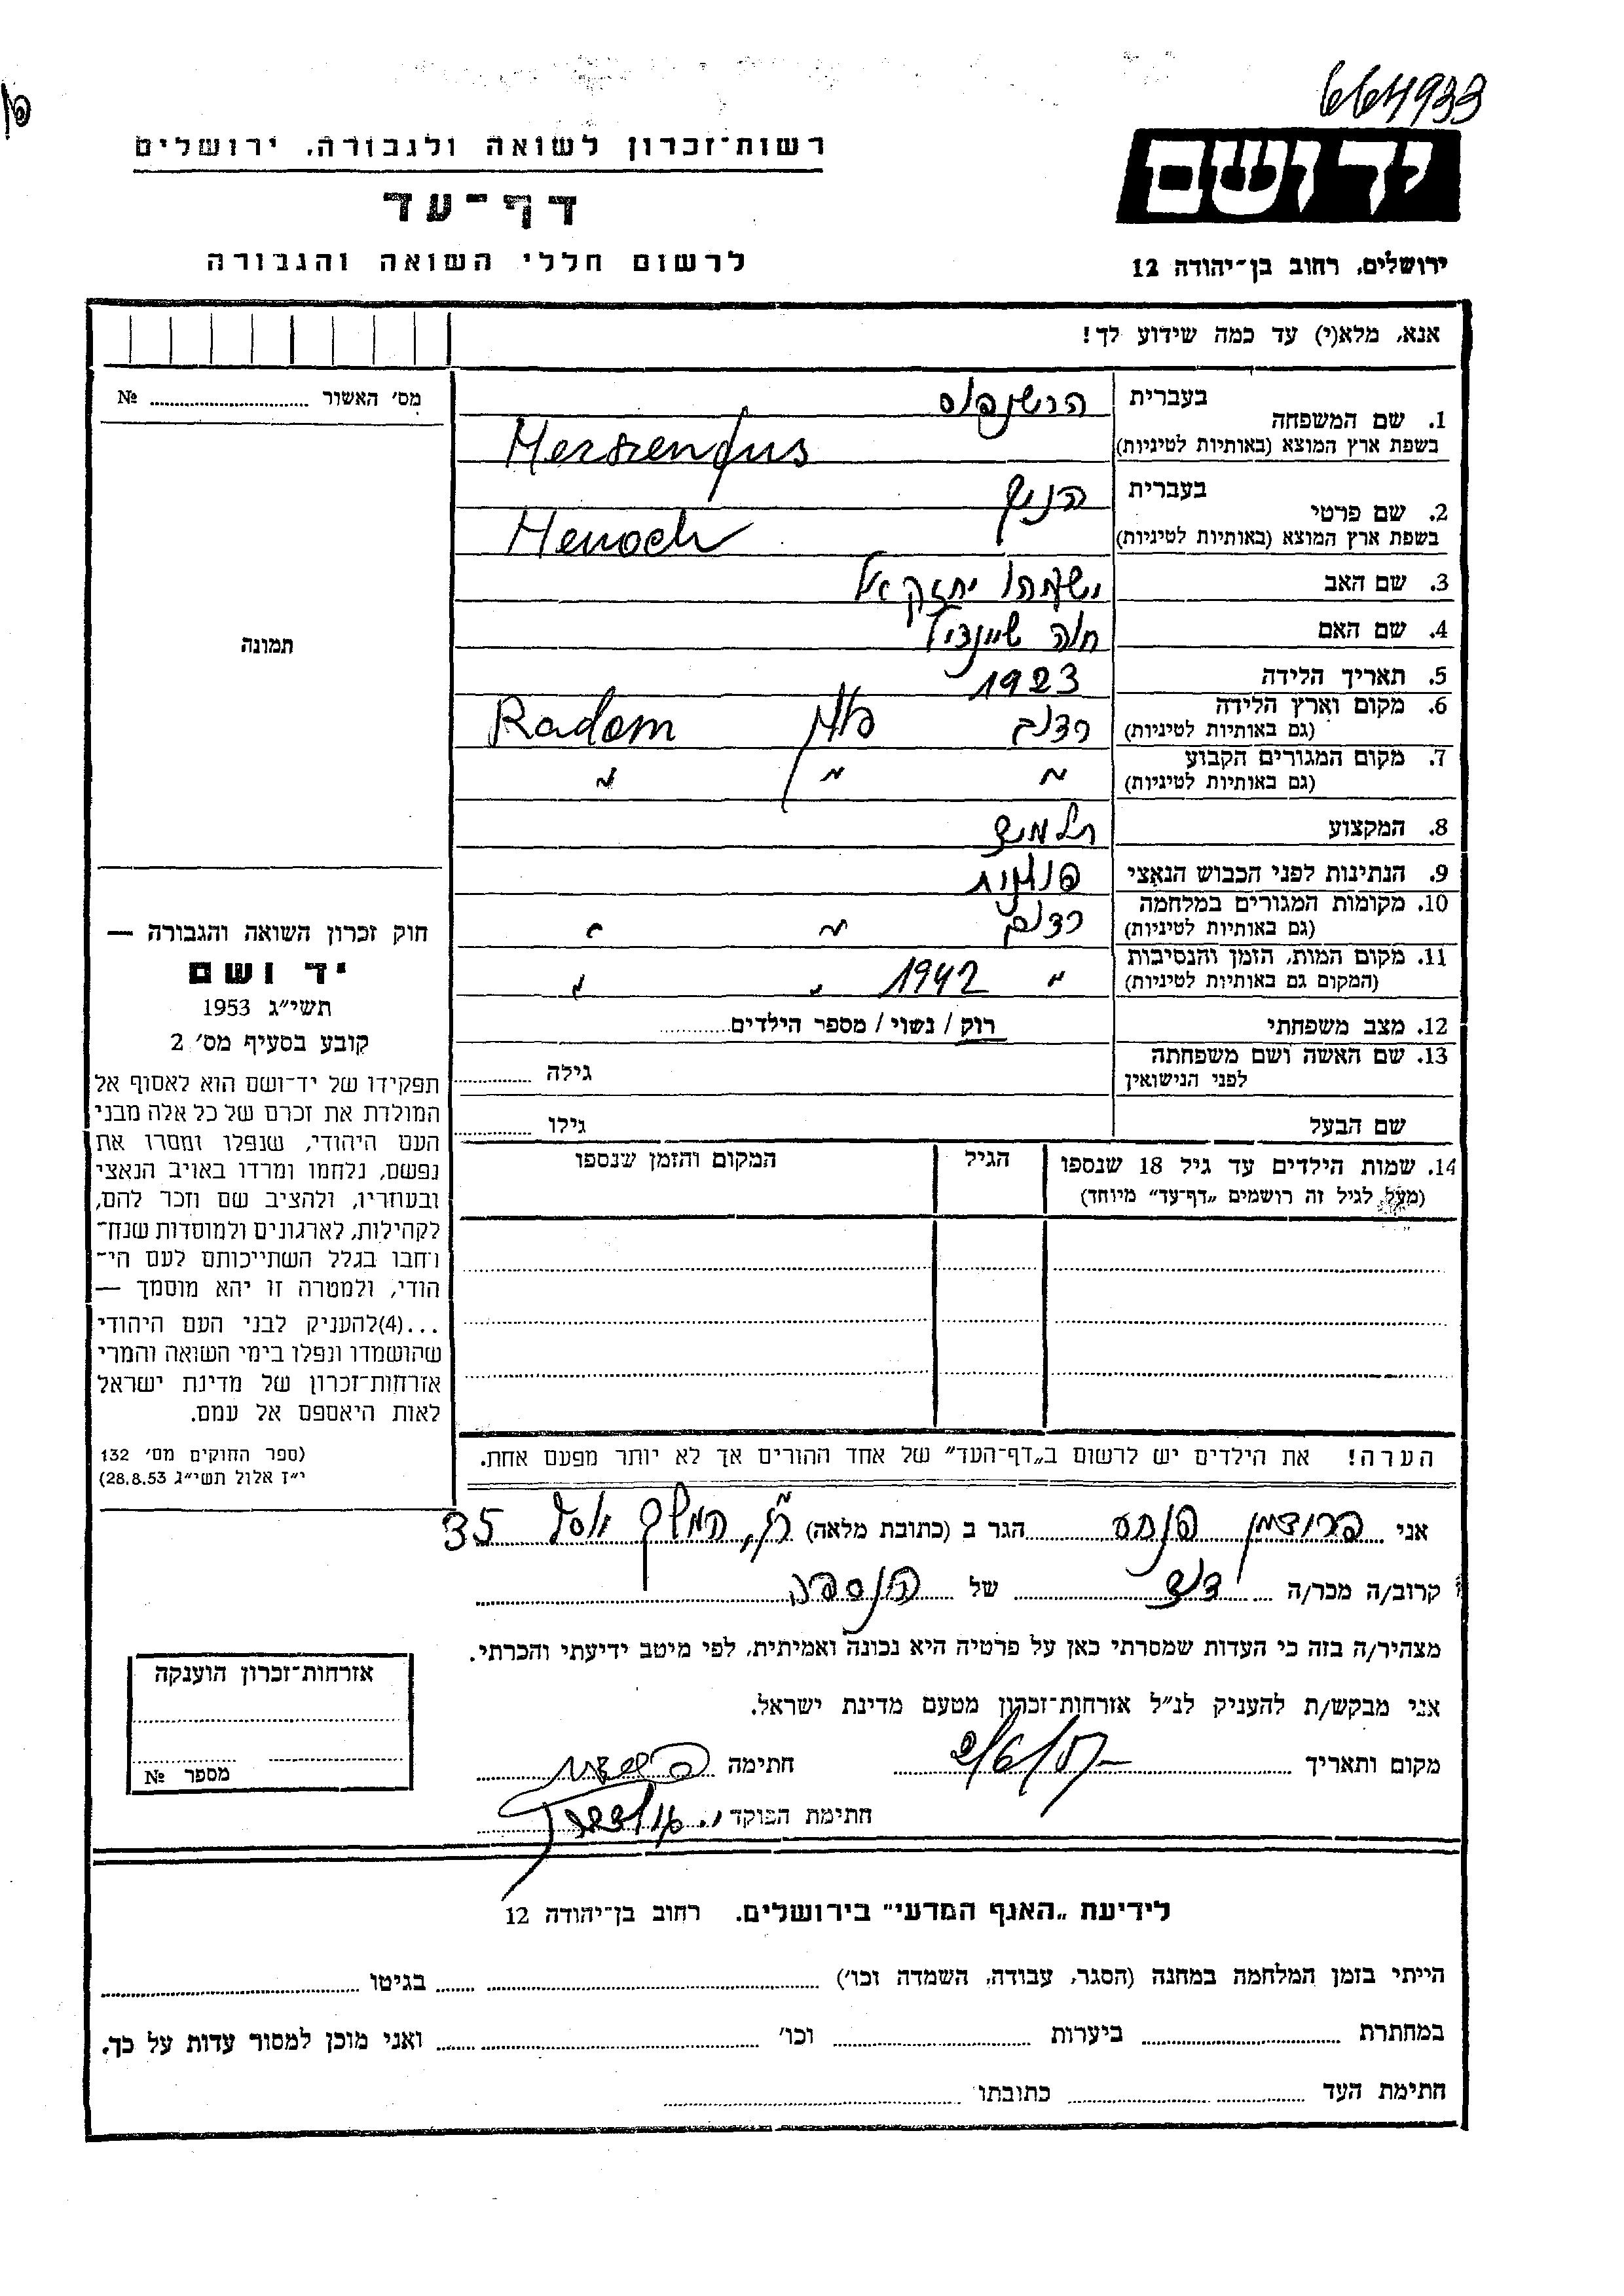 664933
רשות־זכרון לשואה ולגבורה, ירושלים
דף־עד
לרשום חללי השואה והגבורה
יד ושם
ירושלים, רחוב בן־יהודה 12
אנא, מלא(י) עד כמה שידוע לך!
מס׳ האשור № ........
תמונה
1. שם המשפחה בעברית הרשנפוס
בשפת ארץ המוצא (באותיות לטיניות) Herszenfus
2. שם פרטי בעברית הניך
בשפת ארץ המוצא (באותיות לטיניות) Henoch
3. שם האב ישעיהו יחזקאל
4. שם האם חוה שיינדיל
5. תאריך הלידה 1923
6. מקום וארץ הלידה (גם באותיות לטיניות) רדום פולין Radom
7. מקום המגורים הקבוע (גם באותיות לטיניות) ״ ״ ״
8. המקצוע תלמיד
9. הנתינות לפני הכבוש הנאצי פולנית
10. מקומות המגורים במלחמה (גם באותיות לטיניות) רדום ״ ״
11. מקום המות, הזמן והנסיבות (המקום גם באותיות לטיניות) ״ 1942 ״ ״
12. מצב משפחתי רוק / נשוי / מספר הילדים........
13. שם האשה ושם משפחתה לפני הנישואין גילה ........
שם הבעל גילו ........
14. שמות הילדים עד גיל 18 שנספו (מעל לגיל זה רושמים „דף־עד״ מיוחד)
הגיל
המקום והזמן שנספו
הערה! את הילדים יש לרשום ב„דף־העד״ של אחד ההורים אך לא יותר מפעם אחת.
חוק זכרון השואה והגבורה —
יד ושם
תשי״ג 1953
קובע בסעיף מס׳ 2
תפקידו של יד־ושם הוא לאסוף אל
המולדת את זכרם של כל אלה מבני
העם היהודי, שנפלו ומסרו את
נפשם, נלחמו ומרדו באויב הנאצי
ובעוזריו, ולהציב שם וזכר להם,
לקהילות, לארגונים ולמוסדות שנח־
רחבו בגלל השתייכותם לעם הי־
הודי, ולמטרה זו יהא מוסמך —
...(4)להעניק לבני העם היהודי
שהושמדו ונפלו בימי השואה והמרי
אזרחות־זכרון של מדינת ישראל
לאות היאספם אל עמם.
(ספר החוקים מס׳ 132
י״ז אלול תשי״ג 28.8.53)
אני פרוצמן הגר ב (כתובת מלאה) ת״א, המלך 35
קרוב/ה מכר/ה דוד של הנספה
מצהיר/ה בזה כי העדות שמסרתי כאן על פרטיה היא נכונה ואמיתית, לפי מיטב ידיעתי והכרתי.
אני מבקש/ת להעניק לנ״ל אזרחות־זכרון מטעם מדינת ישראל.
מקום ותאריך חתימה
חתימת הפוקד
אזרחות־זכרון הוענקה
מספר №
לידיעת „האגף המדעי״ בירושלים, רחוב בן־יהודה 12
הייתי בזמן המלחמה במחנה (הסגר, עבודה, השמדה וכו׳) ........ בגיטו ........
במחתרת ........ ביערות ........ וכו׳ ........ ואני מוכן למסור עדות על כך.
חתימת העד ........ כתובתו ........